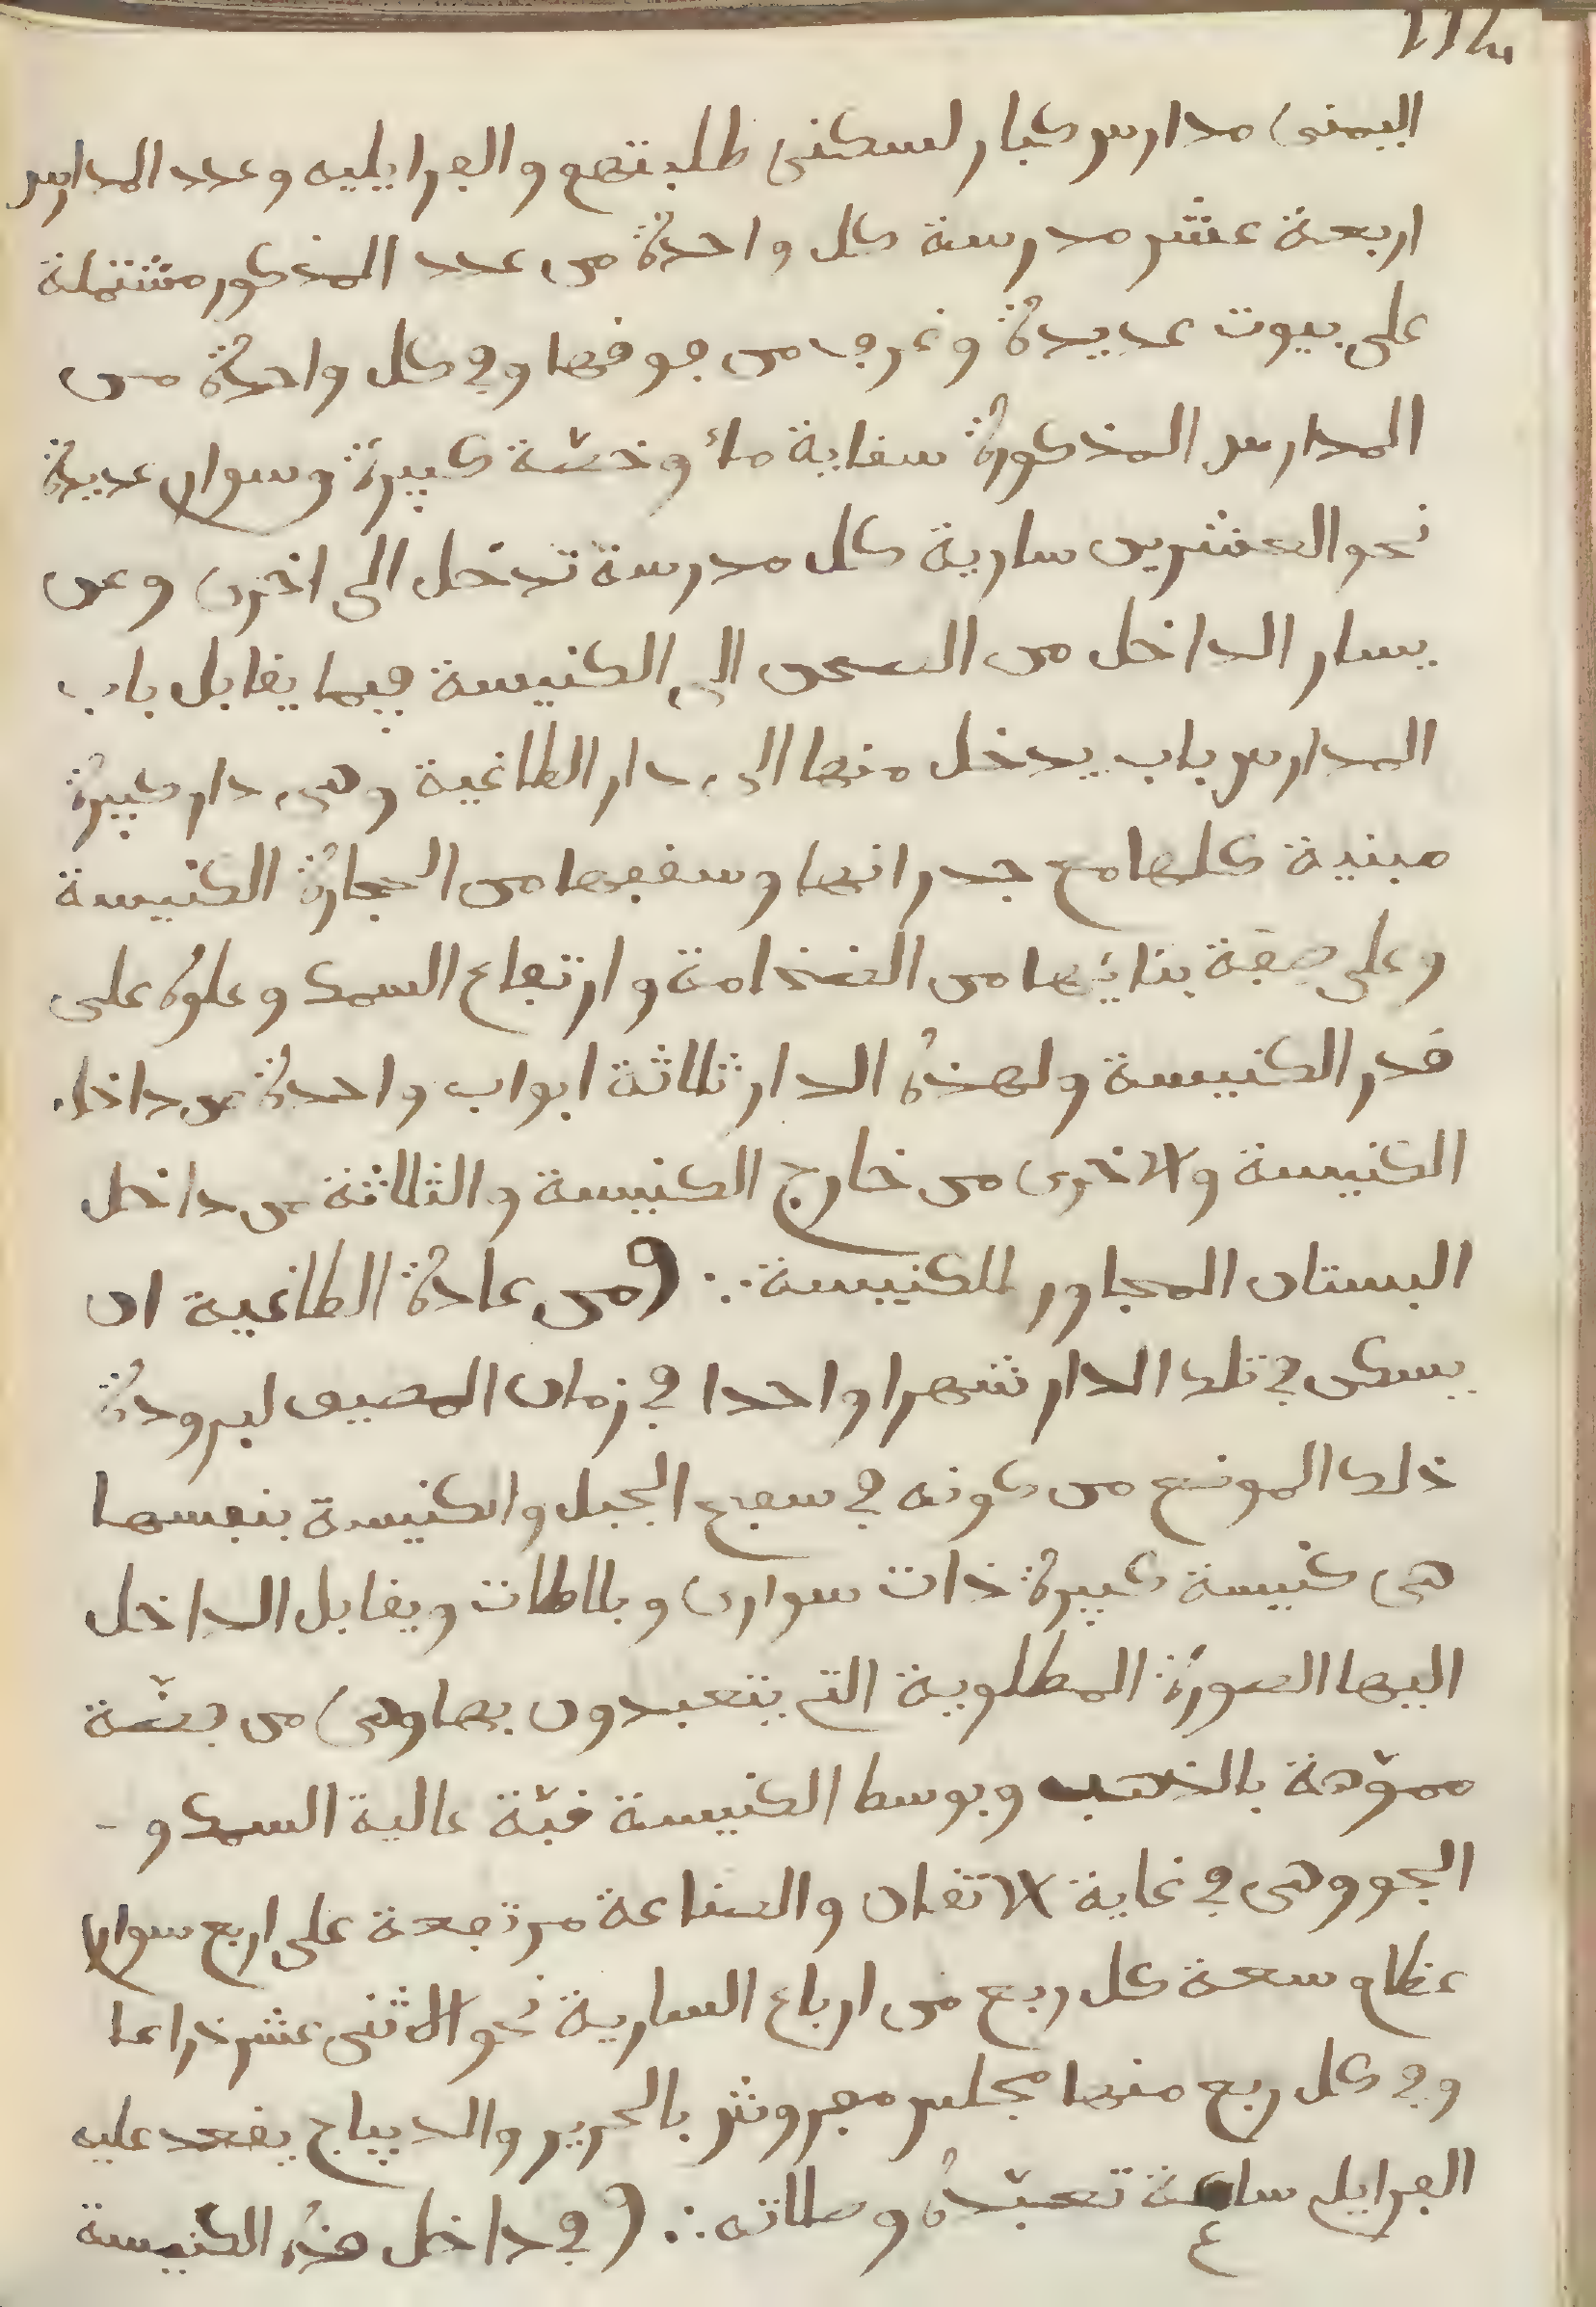 114
اليمنى مدارس كبار لسكنى طلبتهم والفرايليه وعدد المدارس
اربعة عشر مدرسة كل واحدة من عدد المذكور مشتملة
على بيوت عديدة وغرف من جوفها وفي كل واحدة من
المدارس المذكورة سقاية ماء وخصّة كبيرة وسوار عديدة
نحو العشرين سارية كل مدرسة تدخل الى اخرى وعن
يسار الداخل من الصحن الى الكنيسة فيما يقابل باب
المدارس باب يدخل منها الى دار الطاغية وهى دار كبيرة
مبنية كلها مع جدرانها وسقفها من الحجارة الكنيسة
وعلى صفة بنائها من الضخامة وارتفاع السمك وعلوه على
قدر الكنيسة ولهذه الدار ثلاثة ابواب واحدة من داخل
الكنيسة والاخرى من خارج الكنيسة والثالثة من داخل
البستان المجاور للكنيسة ∴ ومن عادة الطاغية ان
يسكن في تلك الدار شهرا واحدا في زمان المصيف لبرودة
ذلك الموضع من كونه في سفح الجبل والكنيسة بنفسها
هى كنيسة كبيرة ذات سوارى وبلاطات ويقابل الداخل
اليها الصورة المطلوبة التي يتعبدون بها وهى من فضّة
مموّهة بالذهب وبوسط الكنيسة قبّة عالية السمك و -
الجو وهى في غاية الاتقان والصناعة مرتفعة على اربع سوار
عظام وسعة كل ربع من ارباع السارية نحو الاثنى عشر ذراعا
وفي كل ربع منها مجلس مفروش بالحرير والديباج يقعد عليه
الفرايلي ساعة تعبّده وصلاته ∴ وفي داخل هذه الكنيسة
ع